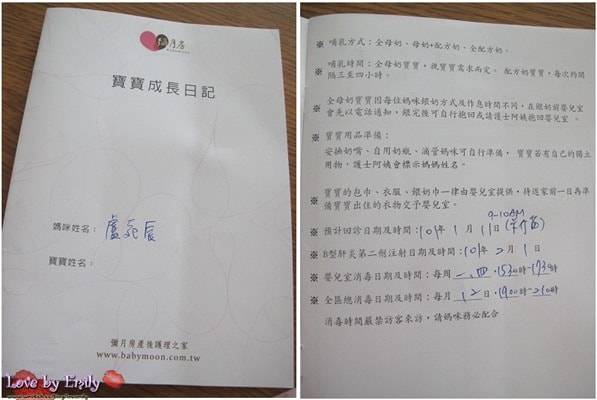 彌月房
babymoon
寶寶成長日記
媽咪姓名：盧宛辰
寶寶姓名：
彌月房產後護理之家
www.babymoon.com.tw
Love by Emily
※ 哺乳方式：全母奶、母奶+配方奶、全配方奶。
※ 哺乳時間：全母奶寶寶，視寶寶需求而定。 配方奶寶寶，每次約間
隔三至四小時。
※ 全母奶寶寶因每位媽咪餵奶方式及作息時間不同，在餵奶前嬰兒室
會先以電話通知，餵完後可自行抱回或請護士阿姨抱回嬰兒室。
※ 寶寶用品準備：
安撫奶嘴、自用奶瓶、滴管媽咪可自行準備， 寶寶若有自己的獨立
用物，護士阿姨會標示媽媽姓名。
※ 寶寶的包巾、衣服、餵奶巾一律由嬰兒室提供，待返家前一日再準
備寶寶出住的衣物交予嬰兒室。
9-10AM
※ 預計回診日期及時間：101年 1 月 11日
※ B型肝炎第二劑注射日期及時間：101年 2 月 1 日
※ 嬰兒室消毒日期及時間：每周 一、四，1530時-1730時
※ 全區總消毒日期及時間：每月 12 日，1900時-2100時
消毒時間嚴禁訪客來訪，請媽咪務必配合